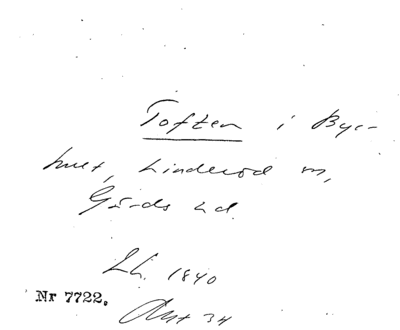 Toften i Bye-
hult, Linderöd sn,
Gärds hd.
Lh. 1840
Nr 7722.
Akt 34